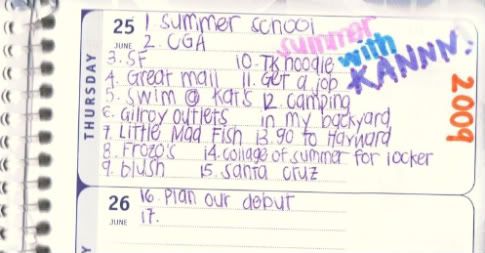 THURSDAY
25
JUNE
1 summer school
2. CGA
3. SF
4. Great mall
5. Swim @ Kat's
6. Gilroy outlets
7. Little Mad Fish
8. Frozo's
9. blush
10. TK hoodie
11. Get a job
12. camping
in my backyard
13. go to Hayward
14. collage of summer for locker
15. santa cruz
summer
with
KANNN:
2009
26
JUNE
16. Plan our debut
17.
Y